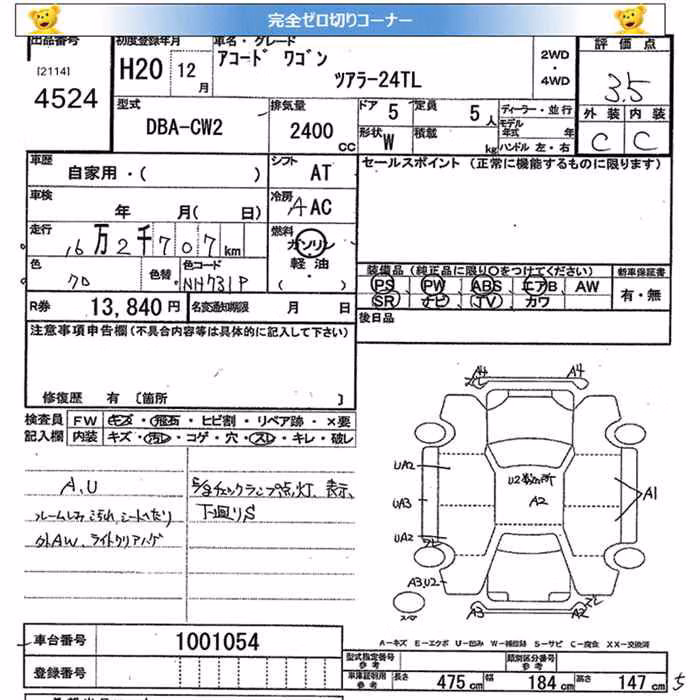 完全ゼロ切りコーナー
出品番号 初度登録年月 車名・グレード 評価点
[2114] 4524 H20 12月 アコード ワゴン 2WD・4WD 3.5
ツアラー24TL
型式 排気量 ドア 5 定員 5人 ディーラー・並行 外装 内装
DBA-CW2 2400cc 形状 W 積載 kg モデル年式 年 C C
ハンドル 左・右
車歴 シフト セールスポイント (正常に機能するものに限ります)
自家用・( ) AT
車検 冷房
年 月( 日) A AC
走行 燃料
16万2千707km ガソリン
軽油
( )
色 色替 色コード 装備品 (純正品に限り○をつけてください) 新車保証書
70 NH731P PS PW ABS エアB AW 有・無
SR ナビ TV カワ
R券 13,840円 名変通知期限 月 日 後日品
注意事項申告欄(不具合内容等は具体的に記入して下さい)
修復歴 有 〔箇所 〕
検査員 FW キズ・飛石・ヒビ割・リペア跡・×要
記入欄 内装 キズ・汚レ・コゲ・穴・スレ・キレ・破レ
A.U
ルームしみこげ汚れ、シートへたり
外AW、ライトクリアハゲ
チェックランプ点灯、表示、
下廻りS
A4 A4
UA2
U2 A2
UA3 A1
UA2
A3.U2
A3 A2
スペア
A-キズ E-エクボ U-凹み W-補修跡 S-サビ C-腐食 XX-交換済
車台番号 1001054
登録番号
型式指定番号 参考 類別区分番号 参考
車庫証明用 参考 長さ 475cm 幅 184cm 高さ 147cm